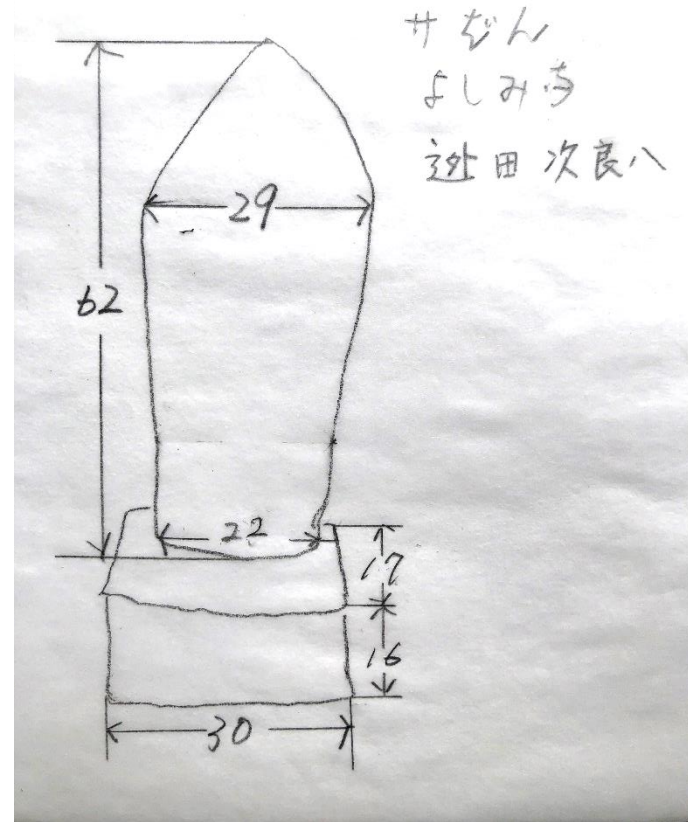 サざん
よしみ寺
逧田次良八
29
62
22
17
16
30